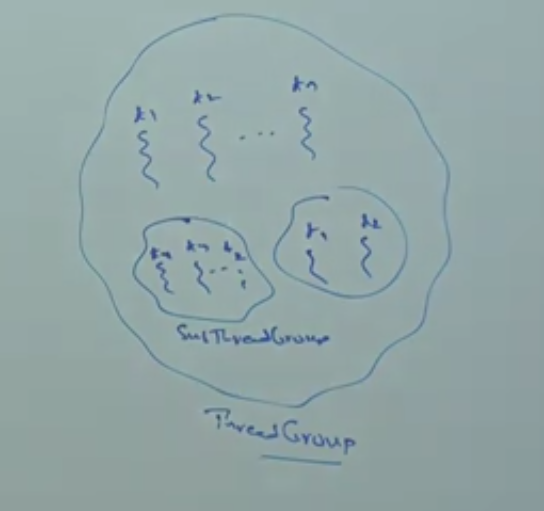 t1 t2 ... tn
t1 t2
SubThreadGroup
ThreadGroup